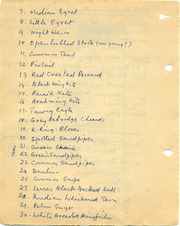 7. Median Egret
8. Little Egret
9. Night Heron
10. Openbilled Stork (nr young?)
11. Common Teal
12. Pintail
13. Red Crested Pochard
14. Black wing Kite
15. Pariah Kite
16. Brahminy Kite
17. Tawny Eagle
18. Grey Patridge (heard)
19. L. Ring. Plover
20. Spotted Sandpiper
21. Green Shank
22. Green Sandpiper
23. Common Sandpiper
24. Dunlin
25. Common Snipe
27. Lesser Black Backed Gull
28. Indian Whiskered Tern
29. Palm Swift
30. White Breasted Kingfisher